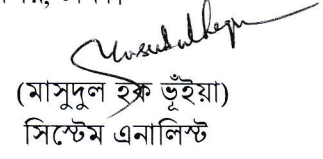 (মাসুদুল হক ভূঁইয়া)
সিস্টেম এনালিস্ট